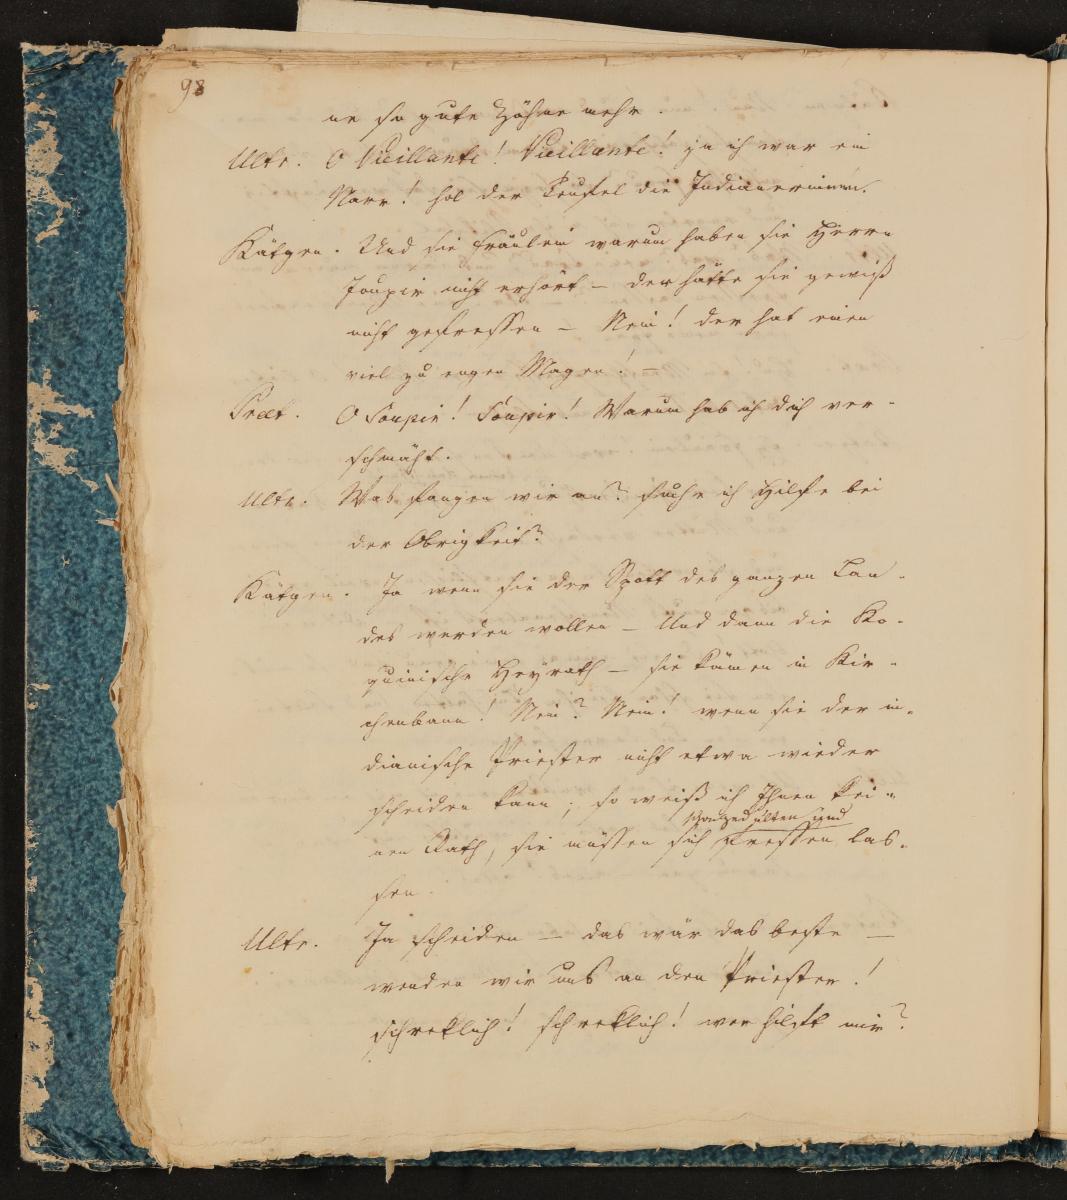 98
ne so gute Zähne mehr.
Ultr. O Vieillante! Vieillante! ja ich war ein
Narr! hol der Teufel die Indianerinnen.
Kätgen. Und sie Fräulein warum haben sie Herrn
Soupir nicht erhört – der hätte sie gewiß
nicht gefressen – Nein! der hat einen
viel zu engen Magen! –
Pret. O Soupir! Soupir! Warum hab ich dich ver-
schmäht.
Ultr. Was fangen wir an? suche ich Hilfe bei
der Obrigkeit?
Kätgen. Ja wenn sie der Spott des ganzen Lan-
des werden wollen – Und dann die Ko-
quinische Heyrath – sie kämen in Kir-
chenbann! Nein? Nein! wenn sie der in-
dianische Priester nicht etwa wieder
scheiden kann, so weiß ich Ihnen kei-
nen Rath, sie müssen sich fressen las-
sen.
Ultr. Ja scheiden – das wär das beste –
wenden wir uns an den Priester!
schreklich! schreklich! wer hilft mir?